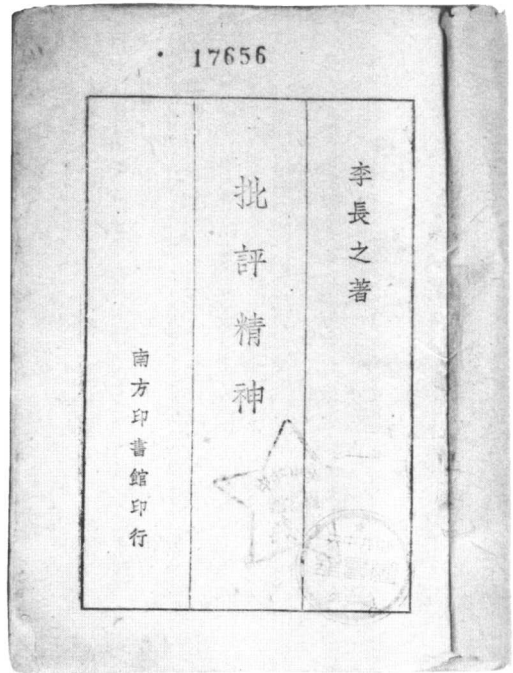 17656
李長之著
批評精神
南方印書館印行